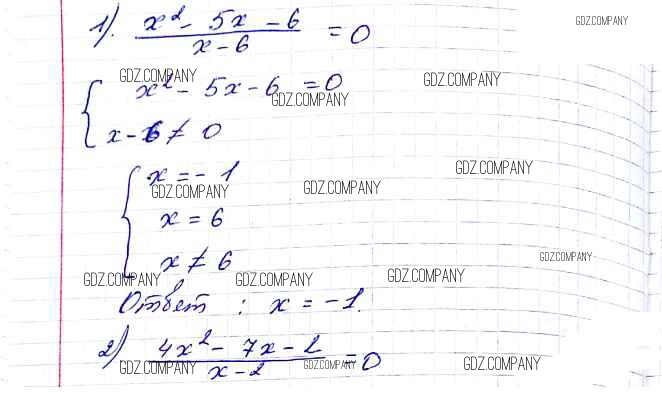 1). (x² - 5x - 6)/(x - 6) = 0
GDZ.COMPANY
GDZ.COMPANY GDZ.COMPANY
{ x² - 5x - 6 = 0
GDZ.COMPANY
x - 6 ≠ 0
GDZ.COMPANY
{ x = -1
GDZ.COMPANY GDZ.COMPANY
x = 6
x ≠ 6
GDZ.COMPANY
GDZ.COMPANY GDZ.COMPANY GDZ.COMPANY
Ответ : x = -1.
2) (4x² - 7x - 2)/(x - 2) = 0
GDZ.COMPANY GDZ.COMPANY GDZ.COMPANY